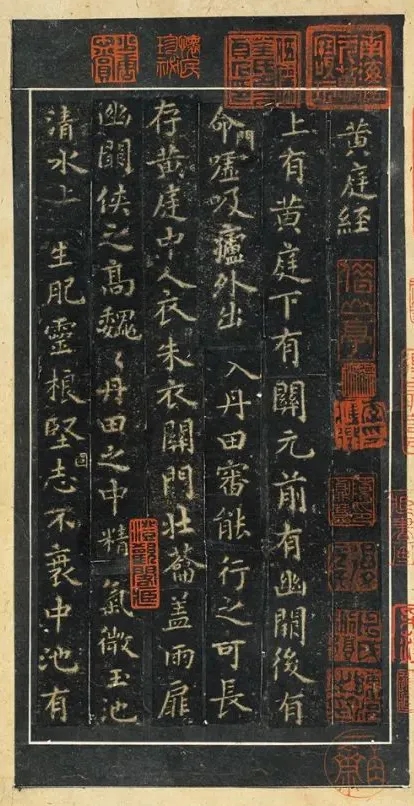 黄庭経
上有黄庭下有關元前有幽闕後有
命門嘘吸廬外出入丹田審能行之可長
存黄庭中人衣朱衣關門壯蘥蓋兩扉
幽闕俠之高魏〻丹田之中精氣微玉池
清水上生肥靈根堅固志不衰中池有